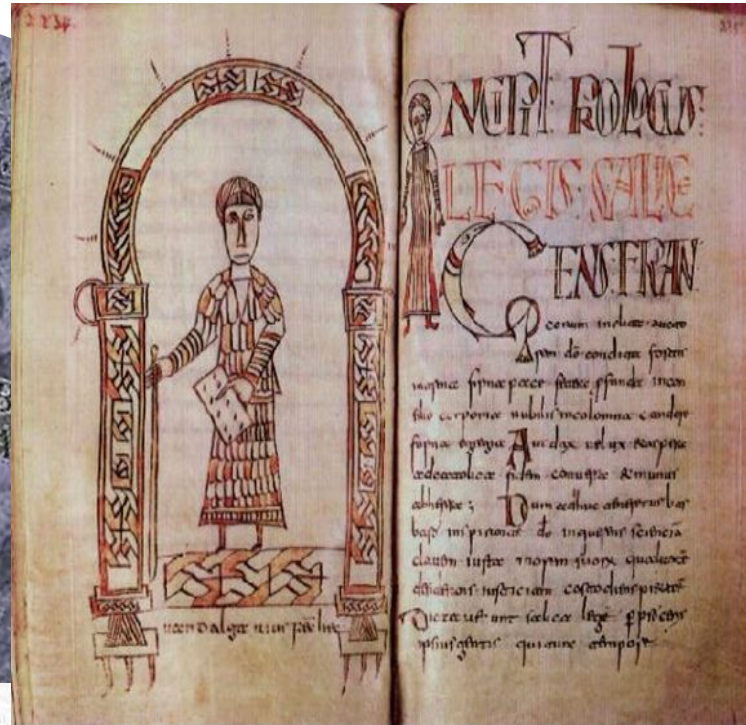 234.
uuandalgarius fec hec
235
INCIPIT PROLOGUS:
LEGIS SALICE
GENS FRAN
corum inclita aucto
rem do condita fortis
in arma firma pace profunda in con
silio corporea nobilis incolomna candore
forma egregia Audax velox et aspera
ad catolica fidem conversa et inmunis
ab herese; Dum adhuc bar
bare inspirante do inquerens scienciã
clavem iuxta morem suorum qualitatẽ
desiderans iusticiam costodiens pietatẽ
Dictaverunt salica lege p proceris
ipsius gentis qui tunc tempore